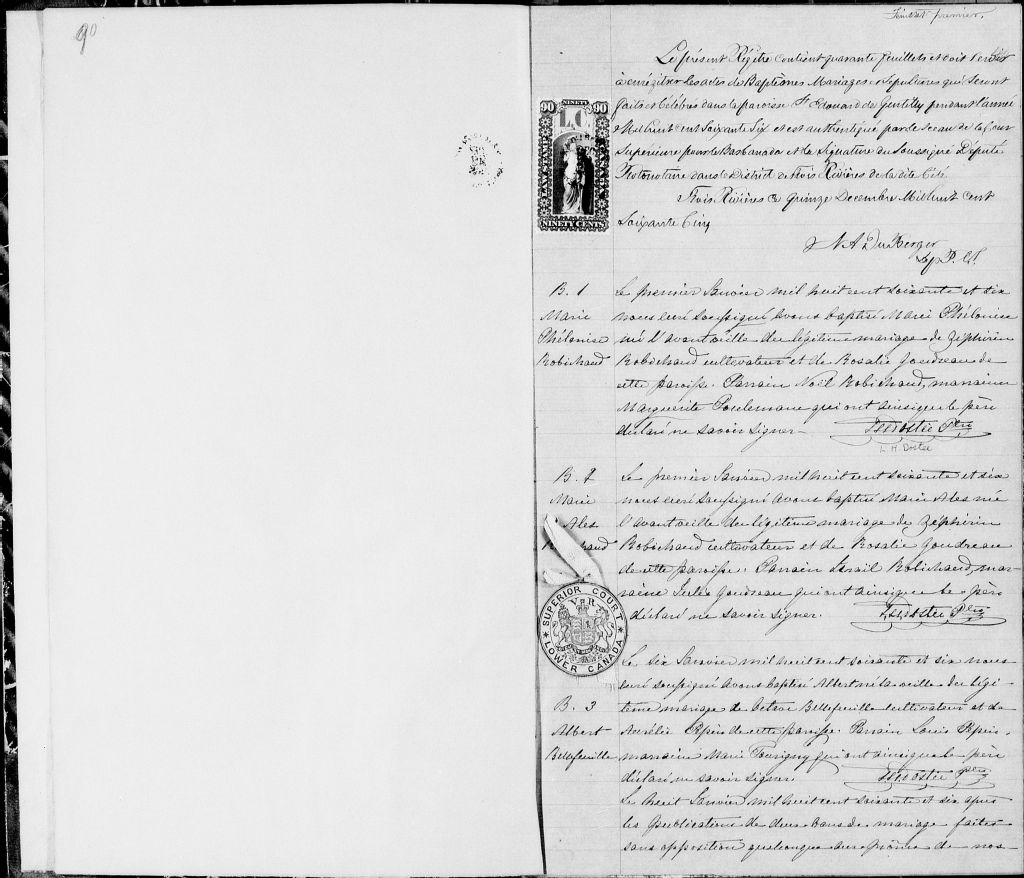 90
Feuillet premier.
Le présent Régître contient quarante feuillets et doit servir
à enrégitrer les actes de Baptêmes Mariages et Sépultures qui seront
faits et célébrés dans la paroisse St. Edouard de Gentilly pendant l'année
Mil huit cent Soixante Six et est authentiqué par le sceau de la Cour
Supérieure pour le Bas Canada et la Signature du Soussigné Député
Protonotaire dans le District de Trois Rivières de la dite Cité.
Trois Rivières ce Quinze Decembre Mil huit cent
Soixante Cinq
DuBerger
NINETY
90
90
L.C.
NINETY CENTS
B. 1
Marie
Phélonise
Robichaud
Le premier Janvier mil huit cent soixante et six
nous curé soussigné avons baptisé Marie Phélonise
née l'avant veille du légitime mariage de Zéphirin
Robichaud cultivateur et de Rosalie Goudreau de
cette paroisse. Parrain Noël Robichaud, marraine
Marguerite qui ont ainsi que le père
déclaré ne savoir signer.
LHDostie Ptre
L. H. Dostie
B. 2
Marie
Ales
Le premier Janvier mil huit cent soixante et six
nous curé soussigné avons baptisé Marie Ales née
l'avant veille du légitime mariage de Zéphirin
Robichaud cultivateur et de Rosalie Goudreau
de cette paroisse. Parrain Israil Robichaud, mar-
raine Goudreau qui ont ainsi que le père
déclaré ne savoir signer.
LHDostie Ptre
SUPERIOR COURT
V R
LOWER CANADA
B. 3
Albert
Bellefeuille
Le six Janvier mil huit cent soixante et six nous
curé soussigné avons baptisé Albert né la veille du légi-
time mariage de Octave Bellefeuille cultivateur et de
Aurélie Pépin de cette paroisse. Parrain Louis Pépin,
marraine Marie Tourigny qui ont ainsi que le père
déclaré ne savoir signer.
LHDostie Ptre
Le huit Janvier mil huit cent soixante et six après
la publication de deux bans de mariage faite
sans opposition quelconque aux prônes de nos